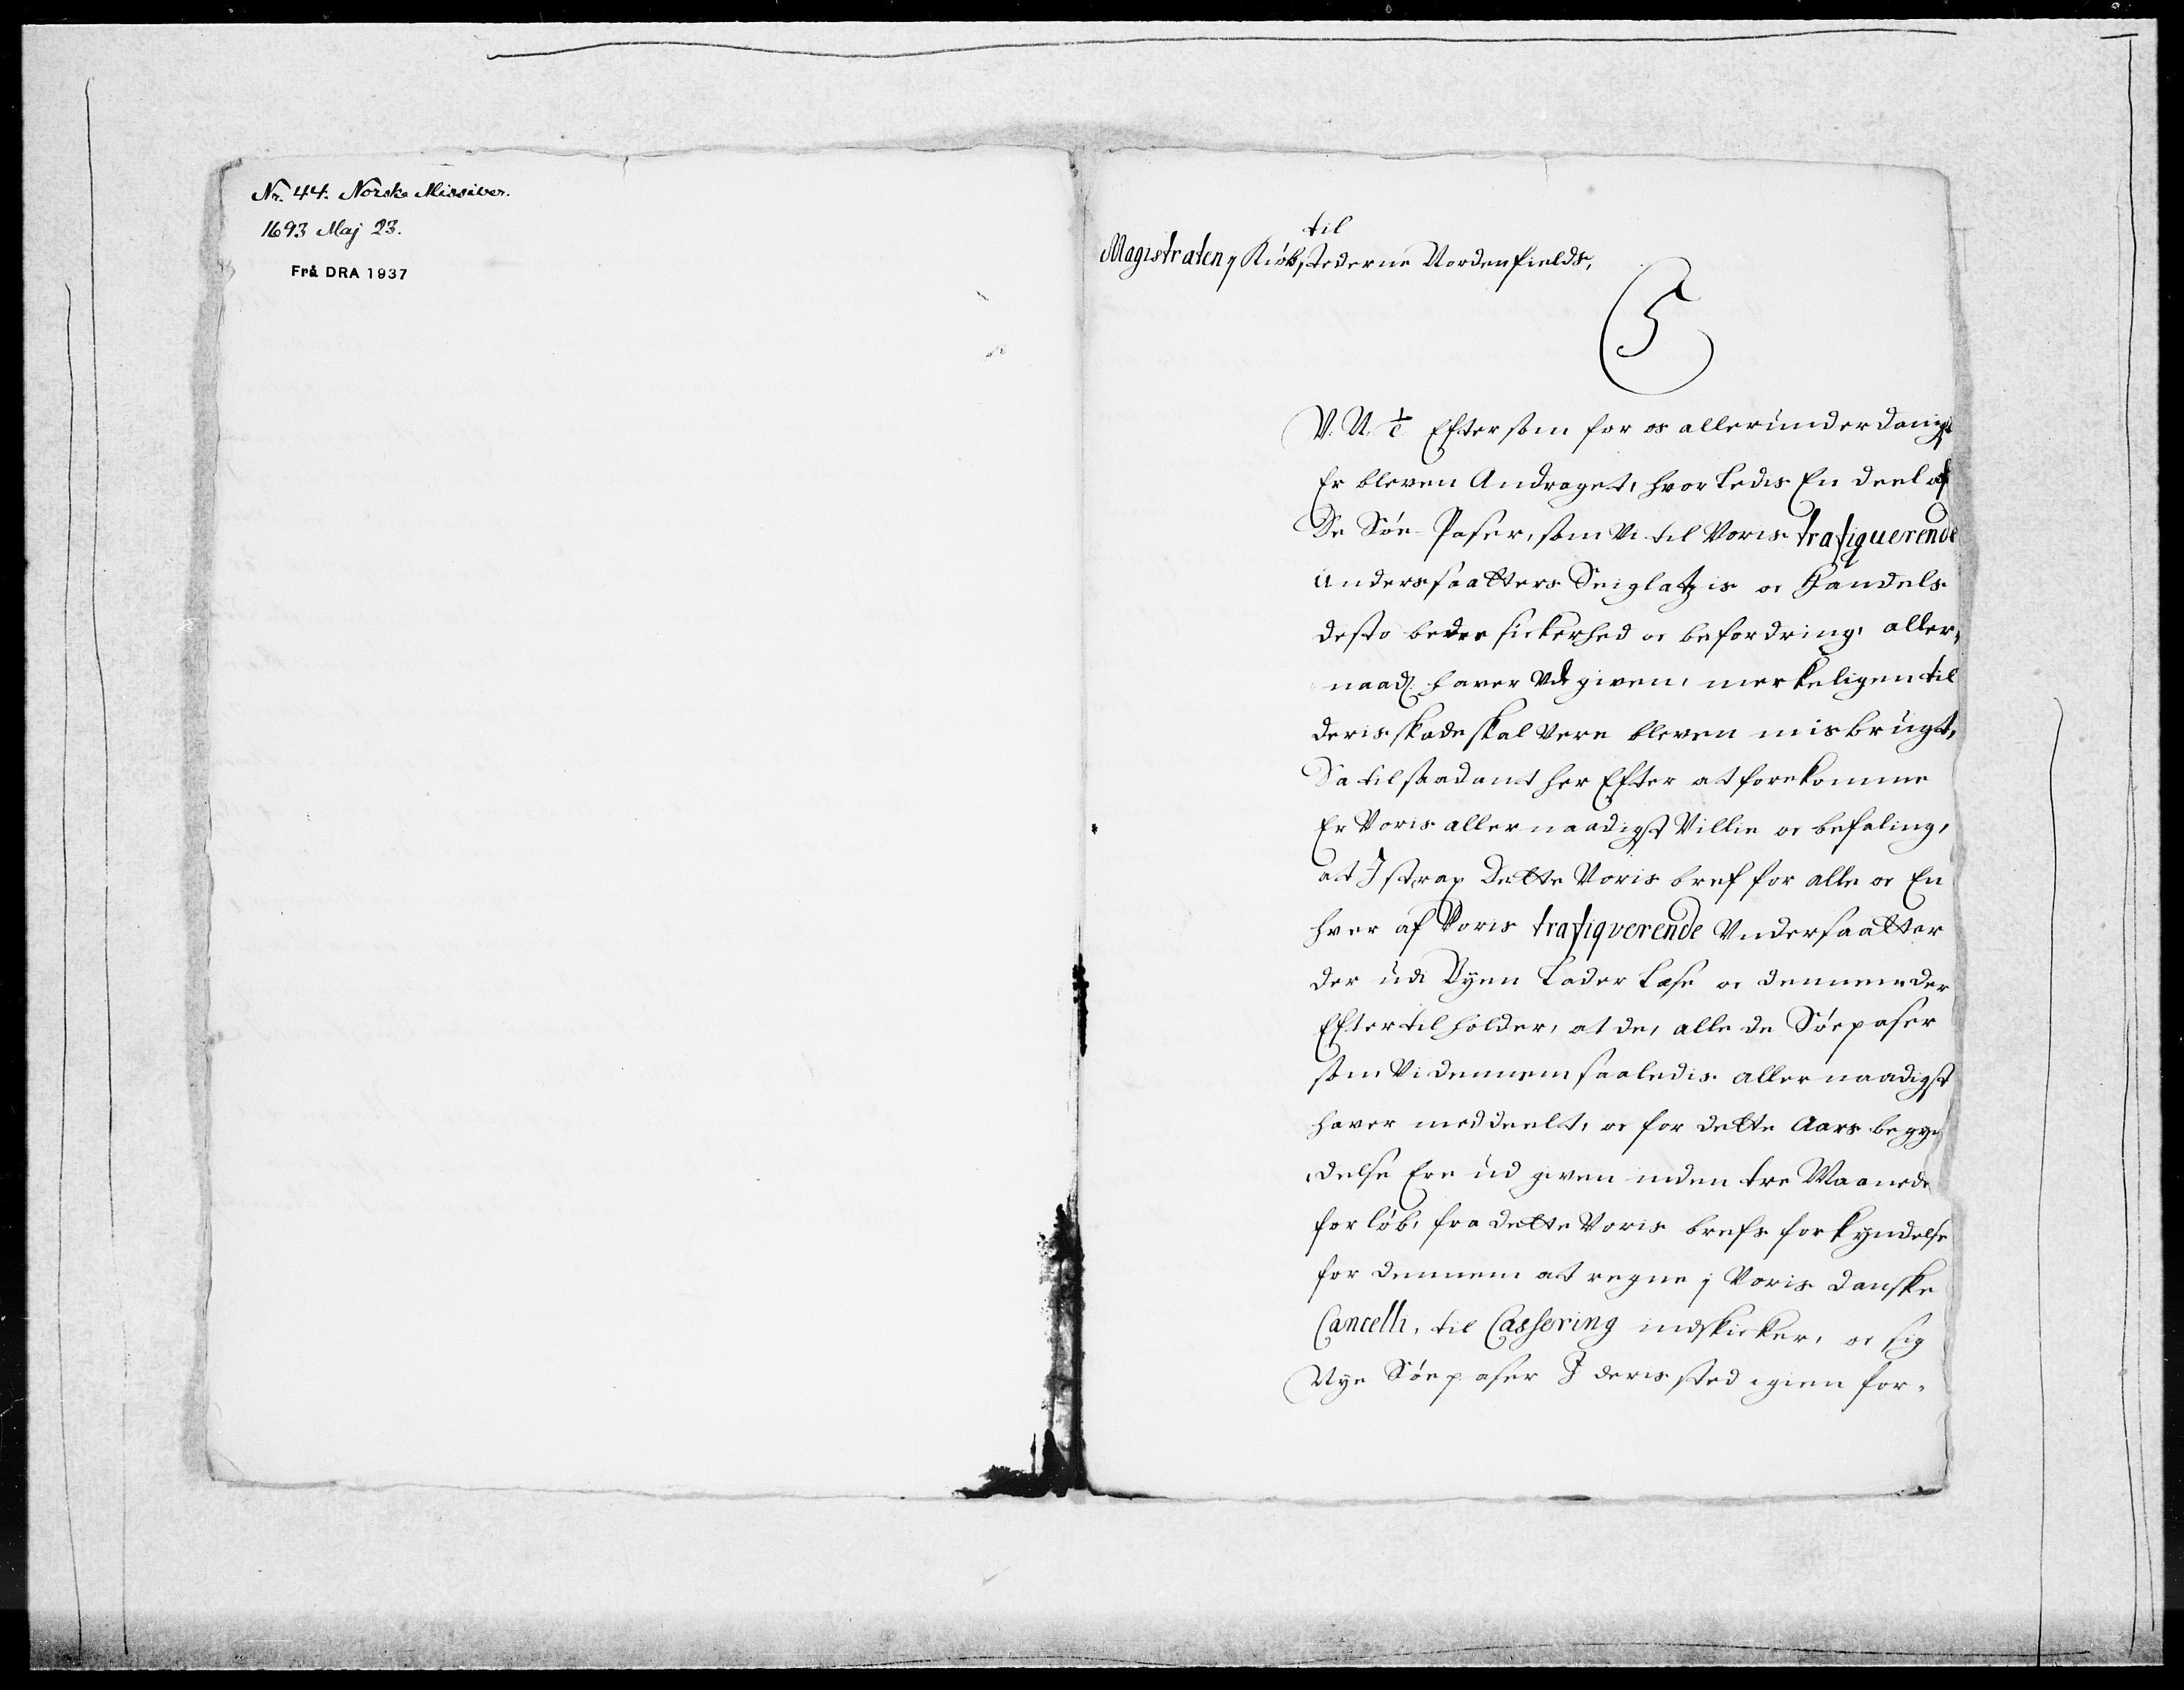 Nr. 44. Norske Missiver.
1693 Maj 23.
Frå DRA 1937
til
Magistraten j Kiøbstederne Nordenfields,
5
V. U. Eftersom for os allerunderdanigst
Er bleven Andraget, hvorledis En deel af
De Søe-Paser, som Vi til Voris trafiquerende
Undersaatters Seiglatzis oc Handels
desto beder sickerhed oc befordring, aller-
naad. hafver Udgiven, merkeligen til
deris skade skal Vere bleven misbrugt,
Da til saadant her Efter at forekomme
Er Voris allernaadigst Villie oc befaling,
at I strax Dette Voris bref for alle oc En
hver af Voris trafiqverende Undersaatter
der udi Byen Lader Læse oc dennem der
Efter tilholder, at de, alle de Søepaser
som Vi dennem saaledis allernaadigst
hafver meddeelt, oc for dette Aars begyn
delse Ere udgiven inden tre Maaneder
forløb, fra dette Voris brefs forkyndelse
for dennem at regne j Voris Danske
Cancelli, til Cassering indskicker, oc sig
Nye Søepaser I deris sted igien for-